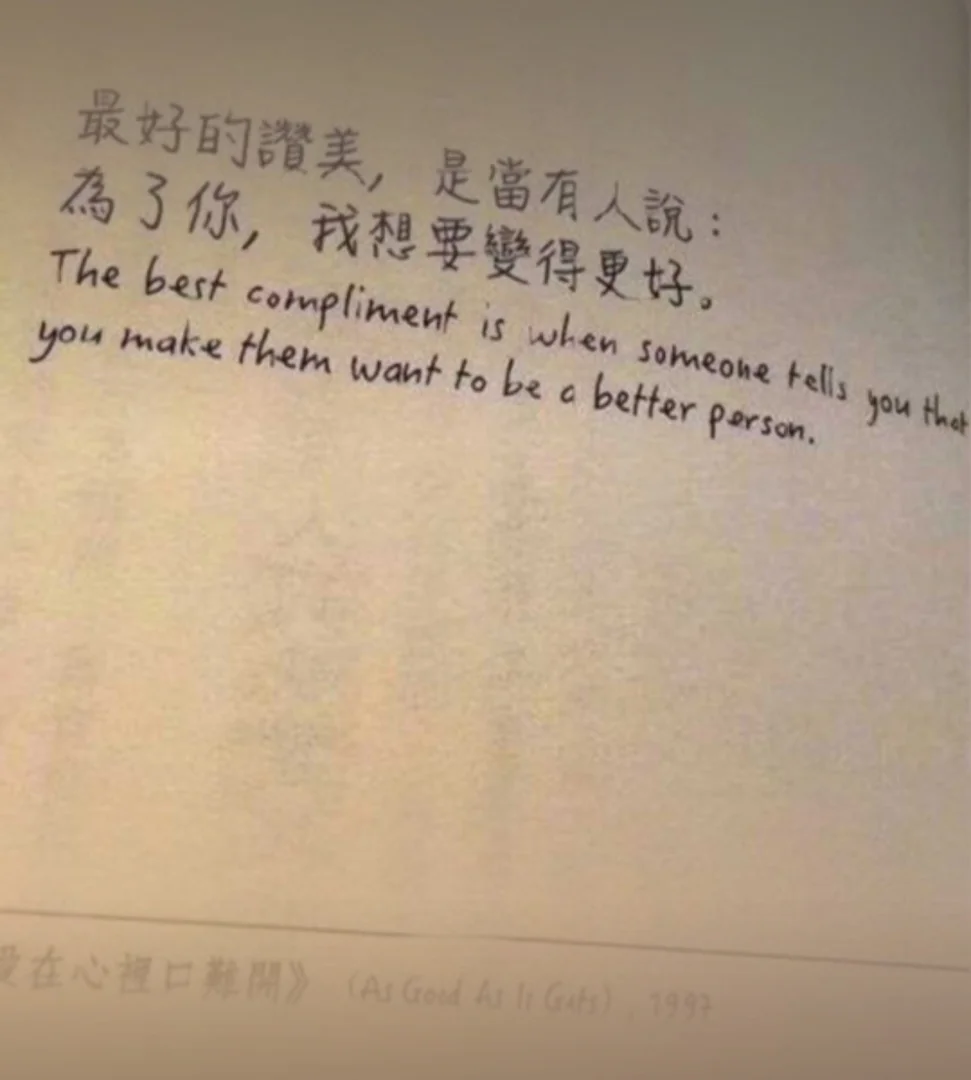 最好的讚美，是當有人說：
為了你，我想要變得更好。
The best compliment is when someone tells you that
you make them want to be a better person.
在心裡口難開》（As Good As It Gets）, 1997